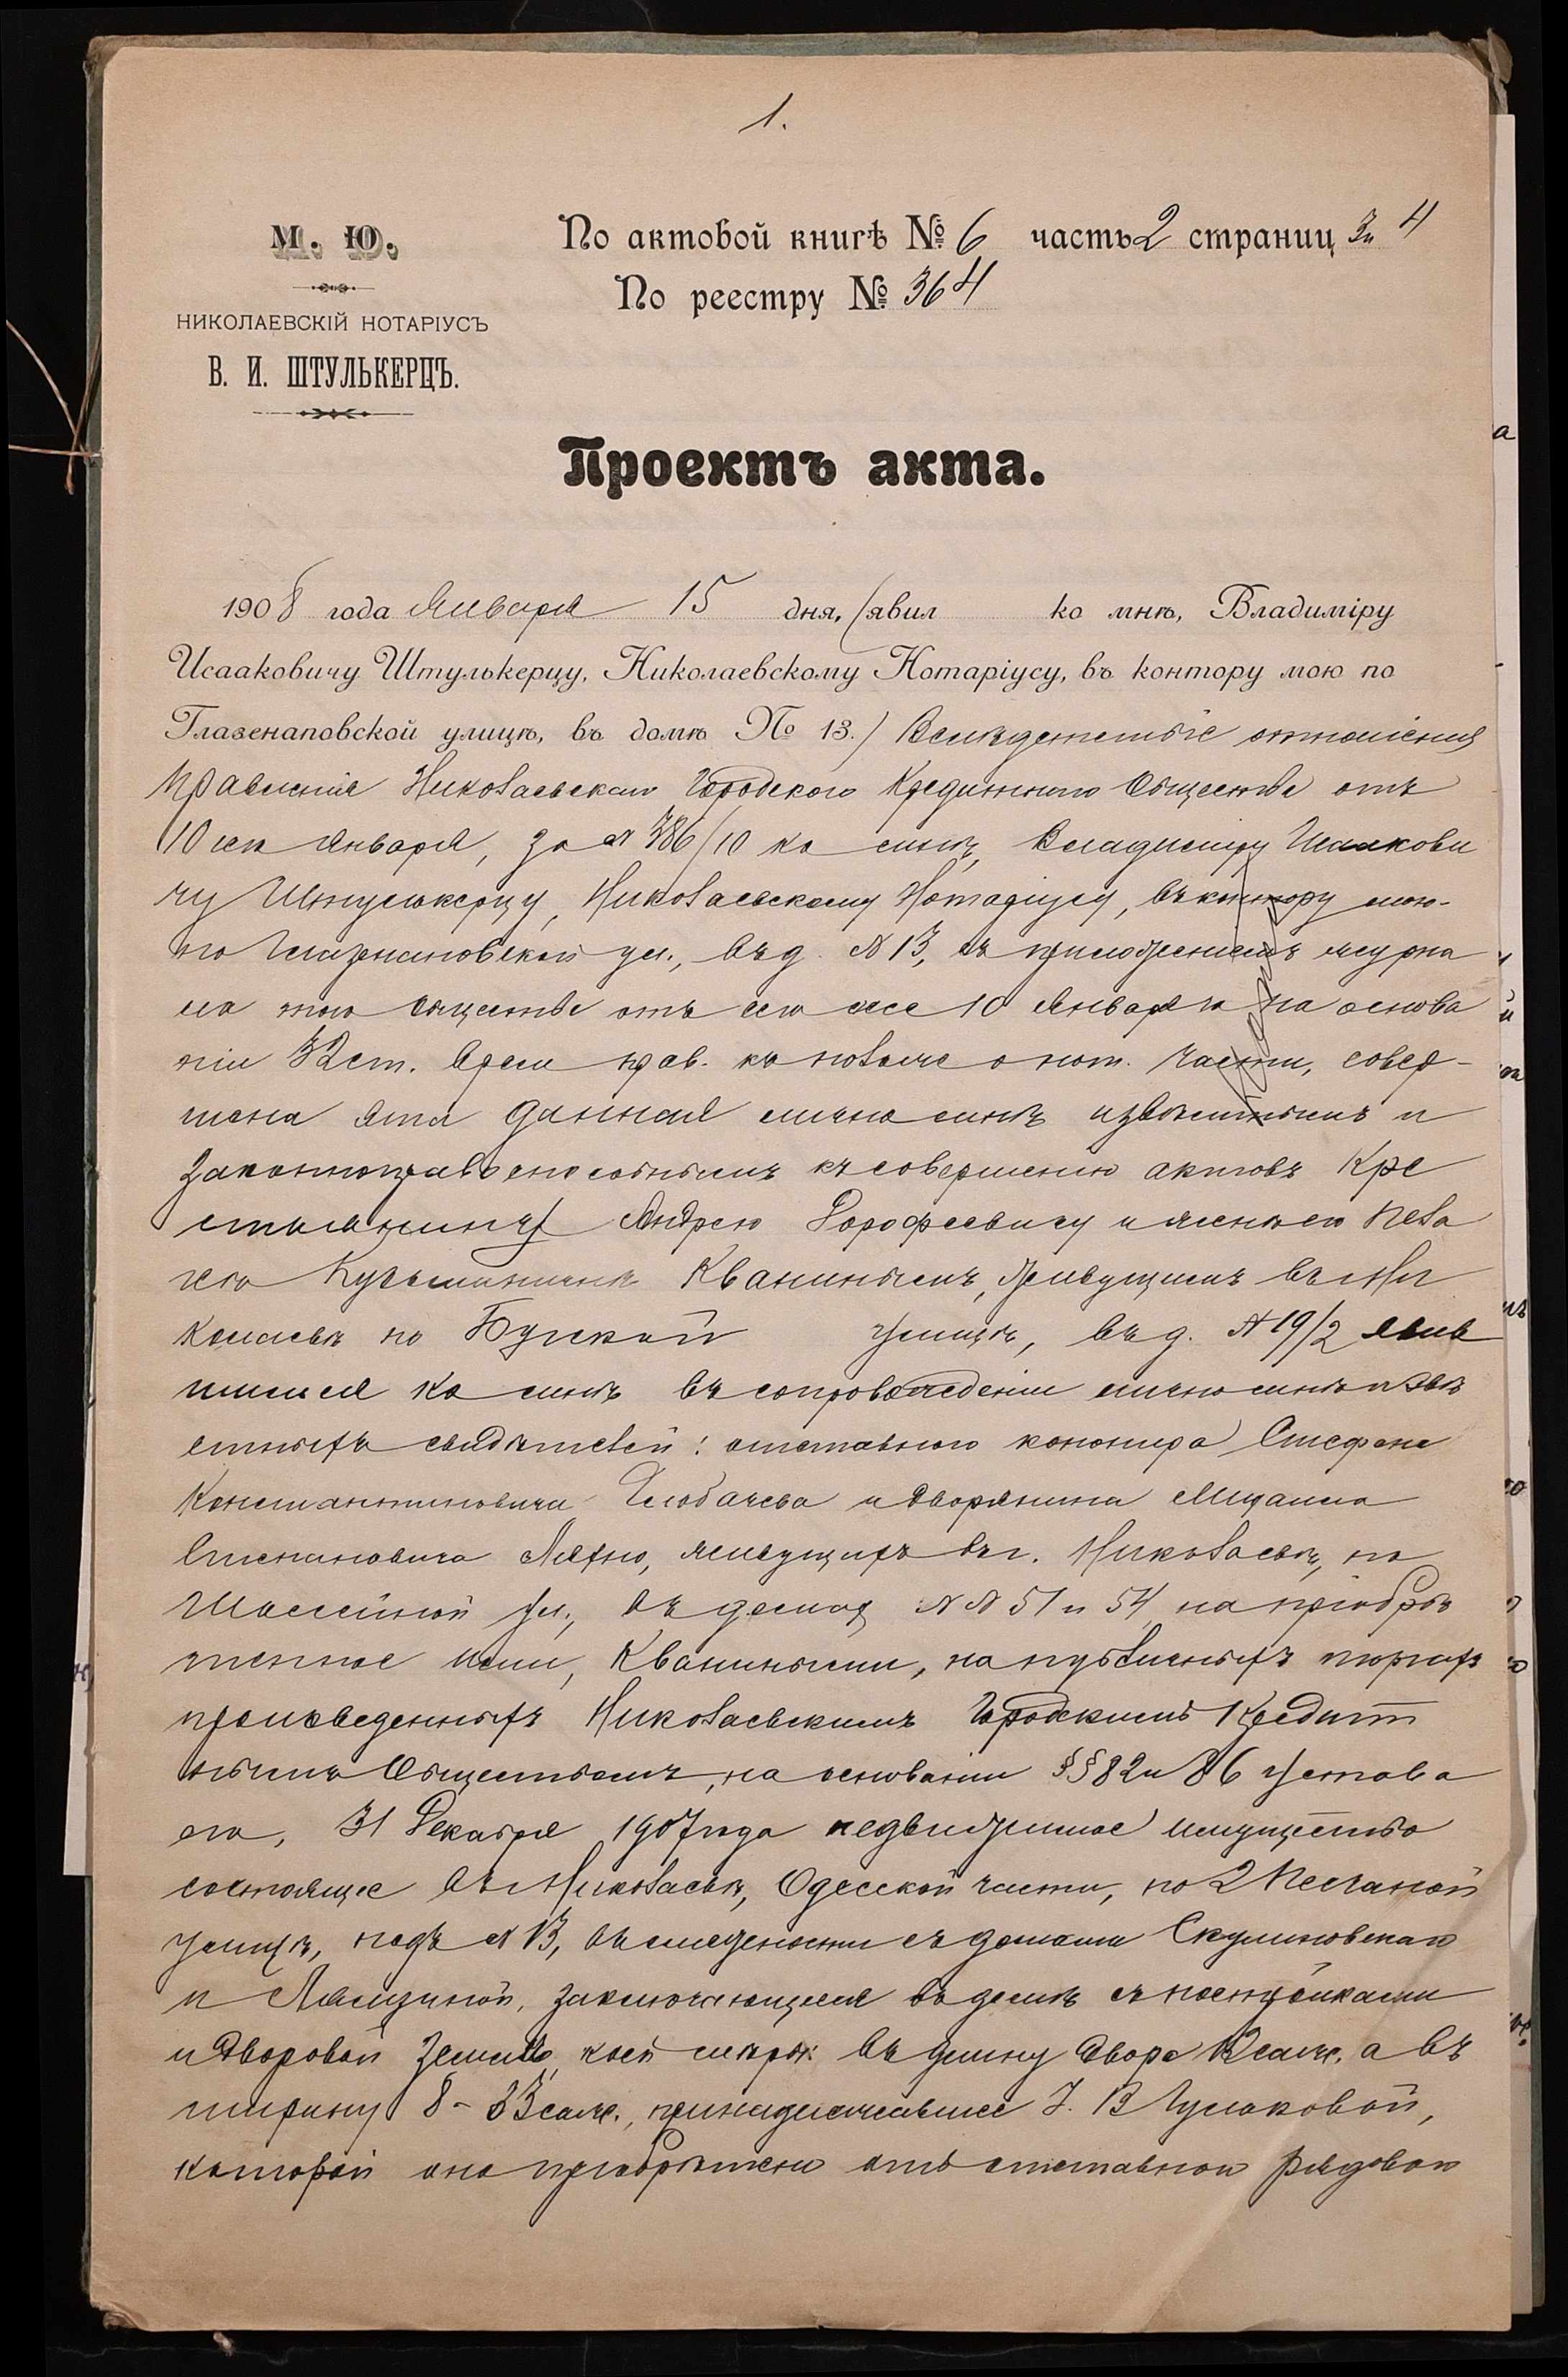 1.
М. Ю.
НИКОЛАЕВСКІЙ НОТАРІУСЪ
В. И. ШТУЛЬКЕРЦЪ.
По актовой книгѣ № 6 часть 2 страниц 3 и 4
По реестру № 364
Проектъ акта.
1908 года Января 15 дня, (явил ко мнѣ, Владиміру
Исааковичу Штулькерцу, Николаевскому Нотаріусу, въ контору мою по
Глазенаповской улицѣ, въ домѣ № 13.) Вслѣдствіе отношенія
Правленія Николаевскаго Городского Кредитнаго Общества отъ
10 сего Января, за № 386/10 ко мнѣ, Владиміру Исаакови
чу Штулькерцу, Николаевскому Нотаріусу, въ контору мою
по Глазенаповской ул., въ д. № 13, съ приложеніемъ журна
ла того Общества отъ сего же 10 Января и на основа
ніи 32 ст. Врем. прав. къ полож. о нот. части, совер-
шена эта данная лично мнѣ извѣстнымъ и
законноправоспособнымъ къ совершенію актовъ Кре
стьянину Андрею Дорофеевичу и женѣ его Пела
геѣ Кузьминичнѣ Кванинымъ, живущимъ въ Ни
колаевѣ по Бугской улицѣ, въ д. № 19/2 явив
шимся ко мнѣ въ сопровожденіи лично мнѣ извѣ
стныхъ свидѣтелей: отставного канонира Стефана
Константиновича Глобачева и дворянина Михаила
Степановича Ляхно, живущихъ въ г. Николаевѣ, по
Шоссейной ул., въ домахъ №№ 51 и 54, на пріобрѣ
тенное ими, Кваниными, на публичныхъ торгахъ
произведенныхъ Николаевскимъ Городскимъ Кредит
нымъ Обществомъ, на основаніи §§ 82 и 86 Устава
его, 31 Декабря 1907 года недвижимое имущество
состоящее въ Николаевѣ, Одесской части, по 2 Песчаной
улицѣ, подъ № 13, въ смежности съ домами Скулиновскаго
и Лямзиной, заключающееся въ домѣ съ постройками
и дворовой землѣ, коей мѣрою: въ длину двора 12 саж. а въ
ширину 8 - 33 саж., принадлежавшее У. В. Гулаковой,
которой оно пріобрѣтено отъ отставного рядового